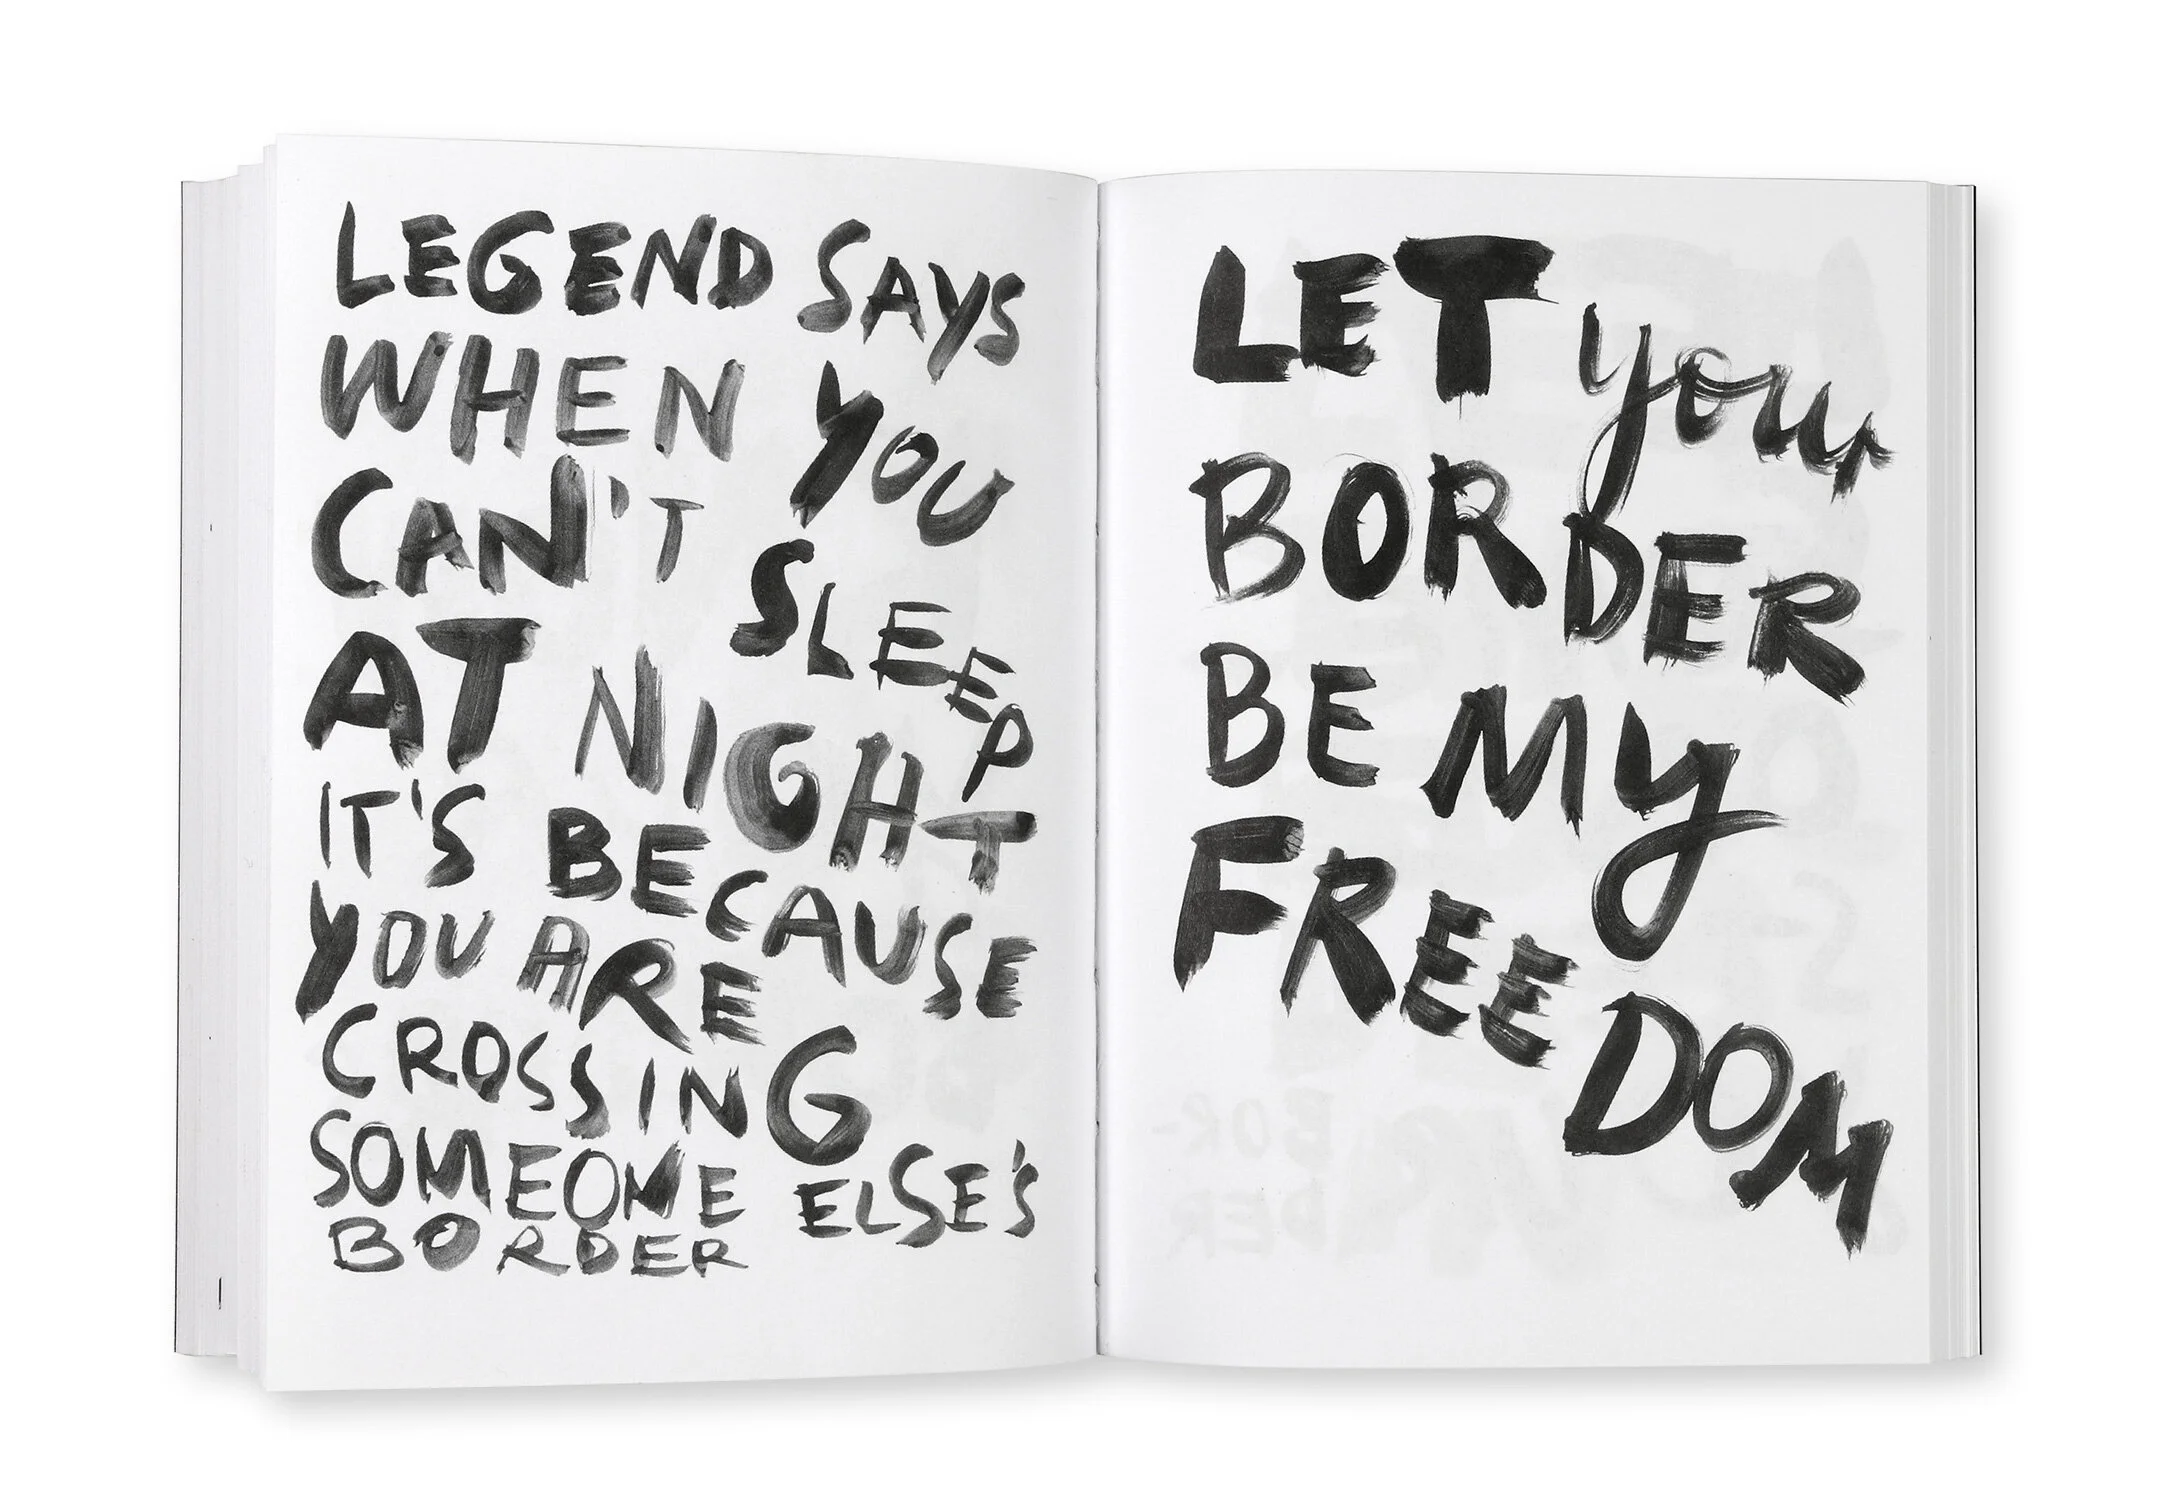 LEGEND SAYS
WHEN YOU
CAN'T SLEEP
AT NIGHT
IT'S BECAUSE
YOU ARE
CROSSING
SOMEONE ELSE'S
BORDER
LET your
BORDER
BE MY
FREEDOM